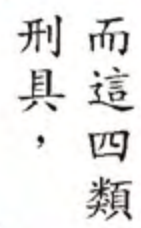 而這四類
刑具，